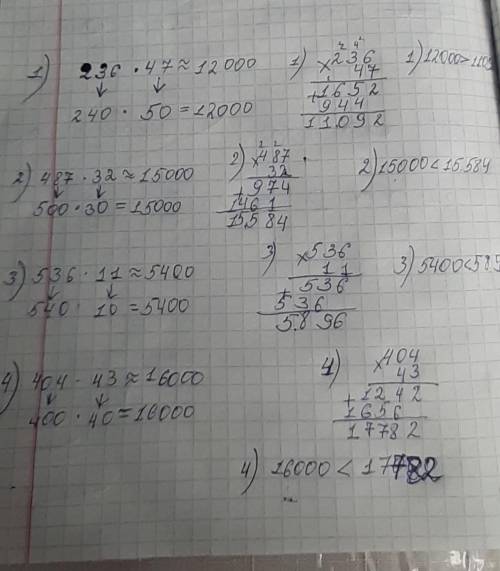 1) 236 · 47 ≈ 12000
240 · 50 = 12000
1) × 236
47
+ 1652
944
11092
1) 12000 > 110
2) 487 · 32 ≈ 15000
500 · 30 = 15000
2) × 487
32
+ 974
1461
15584
2) 15000 < 15584
3) 536 · 11 ≈ 5400
540 · 10 = 5400
3) × 536
11
+ 536
536
5896
3) 5400 < 589
4) 404 · 43 ≈ 16000
400 · 40 = 16000
4) × 404
43
+ 1242
1656
17782
4) 16000 < 17782